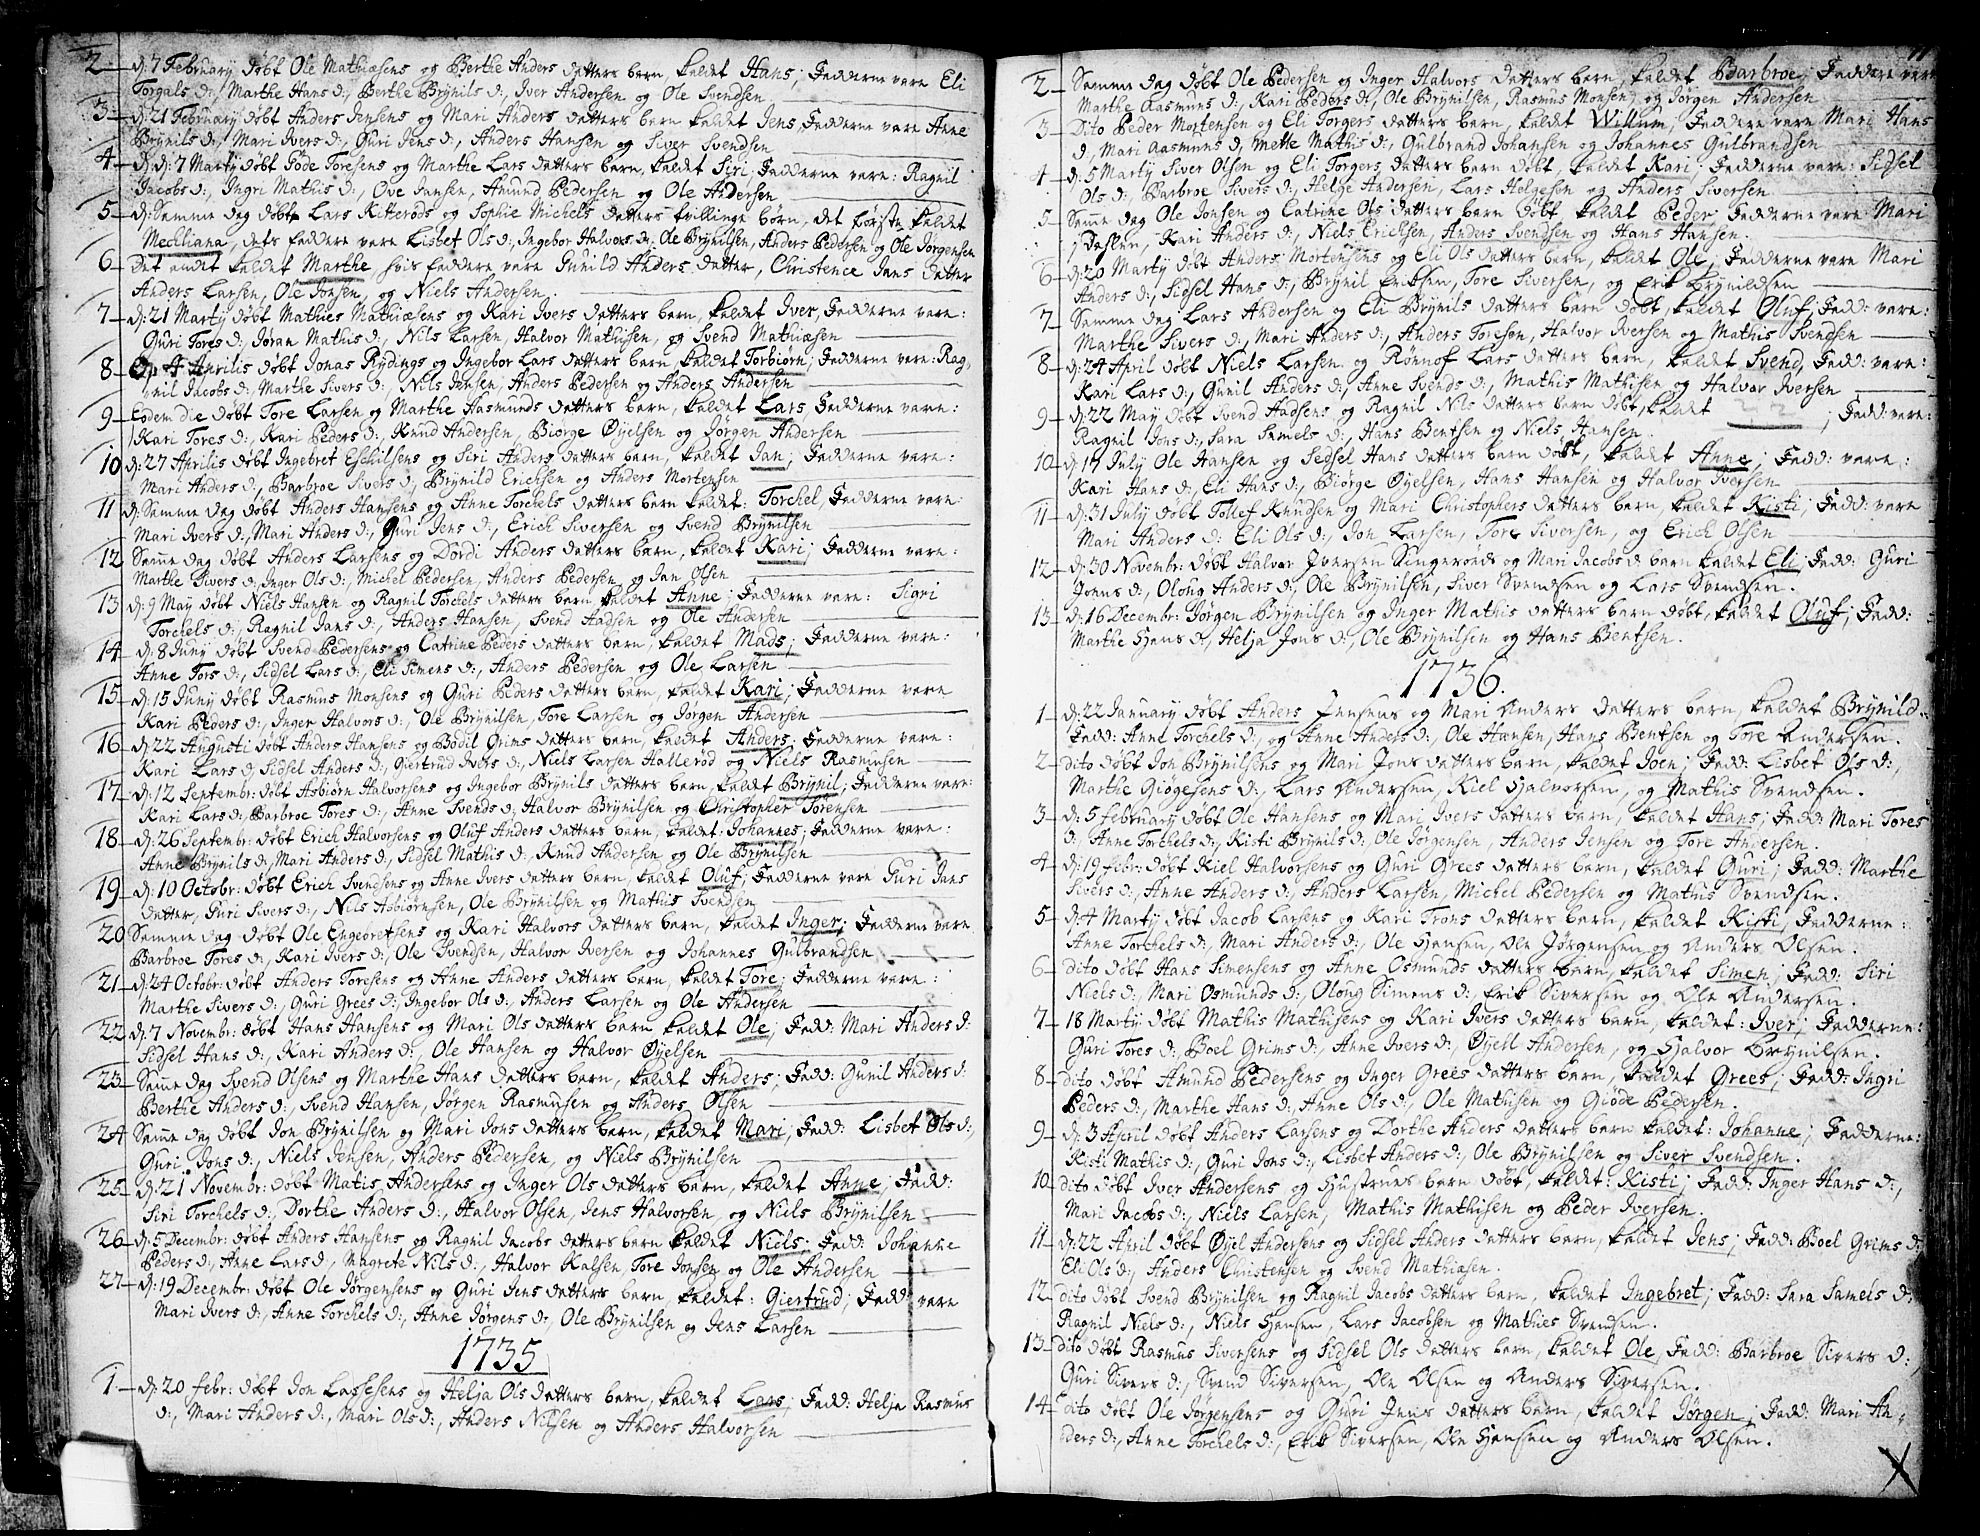 2 d: 7 February døbt Ole Mathiæsens og Berthe Anders datters barn, kaldet Hans; Fadderne vare Eli
Torgals d:, Marthe Hans d:, Berthe Brÿnils d:, Iver Andersen og Ole Svendsen.
3 d: 21 February døbt Anders Jensens og Mari Anders datters barn kaldet Jens, Fadderne vare Anne
Brÿnils d:, Mari Ivers d:, Guri Jens d:, Anders Hansen og Siver Svendsen
4 d: 7 Marty døbt Gøde Toresens og Marthe Lars datters barn, kaldet Siri; Fadderne vare: Ragnil
Jacobs d:, Ingri Mathis d:, Ove Jansen, Amund Pedersen og Ole Andersen
5 d: Samme dag døbt Lars Kitterøds og Sophie Michels datters tvillinge børn, det første kaldet
Mechliana, dets faddere vare Lisbet Ols d:, Ingebor Halvors d:, Ole Brÿnilsen, Anders Pedersen og Ole Jørgensen
6 Det andet kaldet Marthe, hvis faddere vare Gunild Anders datter, Christence Jans datter
Anders Larsen, Ole Jonsen, og Niels Andersen
7 d: 21 Marty døbt Mathies Mathiæsens og Kari Ivers datters barn, kaldet Iver, Fadderne vare:
Guri Tores d:, Jøran Mathis d:, Nils Larsen, Halvor Mathisen, og Svend Mathiæsen
8 4 Aprilis døbt Jonas Rydings og Ingebor Lars datters barn kaldet Torbiørn; Fadderne vare: Rag-
nil Jacobs d:, Marthe Sivers d:, Nils Jensen, Anders Pedersen og Anders Andersen
9 Eodem die døbt Tore Larsen og Marthe Aasmunds datters barn, kaldet Lars, Fadderne vare:
Kari Tores d:, Kari Peders d:, Knud Andersen, Biørge Øyelsen og Jørgen Andersen
10 d: 27 Aprilis døbt Ingebret Eschilsens og Siri Anders datters barn, kaldet Jan; Fadderne vare:
Mari Anders d:, Barbroe Sivers d:, Brÿnild Erichsen og Anders Mortensen
11 d: Samme dag døbt Anders Hansens og Anne Torchels datters barn kaldet: Torchel, Fadderne vare:
Mari Ivers d:, Mari Anders d:, Guri Jens d:, Erich Siversen og Svend Brÿnilsen
12 Samme dag døbt Anders Larsens og Dordi Anders datters barn, kaldet Kari; Fadderne vare:
Marthe Sivers d:, Inger Ols d:, Michel Pedersen, Anders Pedersen og Jan Olsen
13 d: 9 May døbt Niels Hansen og Ragnil Torchels datters barn kaldet Anne; Fadderne vare: Sigri
Torchels d:, Ragnil Jans d:, Anders Hansen, Svend Aadsen og Ole Andersen
14 d: 8 Juny døbt Svend Pedersens og Catrine Peders datters barn, kaldet Mads; Fadderne vare:
Anne Tors d:, Sidsel Lars d:, Eli Simens d:, Anders Pedersen og Ole Larsen
15 d: 15 Juny døbt Rasmus Monsens og Guri Peders datters barn, kaldet Kari; Fadderne vare
Kari Peders d:, Inger Halvors d:, Ole Brÿnilsen, Tore Larsen og Jørgen Andersen
16 d: 22 Augusti døbt Anders Hansens og Bodil Grims datters barn, kaldet Anders; Fadderne vare:
Kari Lars d:, Sidsel Anders d:, Giertrud Ivers d:, Niels Larsen Hallerød og Niels Rasmusen
17 d: 12 Septembr: døbt Asbiørn Halvorsens og Ingebor Brÿnils datters barn, kaldet Brÿnil; Fadderne vare:
Kari Lars d:, Barbroe Tores d:, Anne Svends d:, Halvor Brÿnilsen og Christopher Torensen
18 d: 26 Septembr: døbt Erich Halvorsens og Oluf Anders datters barn, kaldet: Johannes; Fadderne vare:
Anne Brÿnils d:, Mari Anders d:, Sidsel Mathis d:, Knud Andersen og Ole Brÿnilsen
19 d: 10 Octobr: døbt Erich Svendsens og Anne Ivers datters barn, kaldet Oluf; Fadderne vare Guri Jans
datter, Guri Sivers d:, Nils Asbiørnsen, Ole Brÿnilsen og Mathis Svendsen
20 Samme dag døbt Ole Engebretsens og Kari Halvors datters barn, kaldet Inger; Fadderne vare
Barbroe Tores d:, Kari Ivers d:, Ole Svendsen, Halvor Iversen og Johannes Gulbrandsen
21 d: 24 Octobr: døbt Anders Toresens og Anne Anders datters barn, kaldet Tore; Fadderne vare:
Marthe Sivers d:, Guri Grees d:, Ingebor Ols d:, Anders Larsen og Ole Andersen
22 d: 7 Novembr: døbt Hans Hansens og Mari Ols datters barn kaldet Ole; Fadd: Mari Anders d:
Sidsel Hans d:, Kari Anders d:, Ole Hansen og Halvor Øyelsen
23 Samme dag Svend Olsens og Marthe Hans datters barn, kaldet Anders; Fadd: Gunil Anders d:
Berthe Anders d:, Svend Hansen, Jørgen Rasmusen og Anders Olsen
24 Samme dag døbt Jon Brÿnilsen og Mari Jons datters barn, kaldet Mari; Fadd: Lisbet Ols d:,
Guri Jons d:, Niels Jensen, Anders Pedersen, og Niels Brÿnilsen
25 d: 21 Novembr: døbt Matis Andersens og Inger Ols datters barn, kaldet Anne; Fadd:
Siri Torchels d:, Dorthe Anders d:, Halvor Olsen, Jens Halvorsen, og Niels Brÿnilsen
26 d: 5 Decembr: døbt Anders Hansens og Ragnil Jacobs datters barn kaldet Niels; Fadd: Johanne
Peders d:, Anne Lars d:, Magrete Nils d:, Halvor Kalsen, Tore Jonsen og Ole Andersen
27 d: 19 Decembr: døbt Ole Jørgensens og Guri Jens datters barn, kaldet: Giertrud; Fadd: vare
Mari Ivers d:, Anne Torchels d:, Anne Jørgens d:, Ole Brÿnilsen og Jens Larsen
1735
1 d: 20 febr: døbt Jon Lassesens og Helja Ols datters barn, kaldet Lars; Fadd: Helja Rasmus
d:, Mari Anders d:, Mari Ols d:, Anders Nilsen og Anders Halvorsen
2 Samme dag døbt Ole Pedersen og Inger Halvors datters barn, kaldet Barbroe; Faddere vare
Marthe Aasmuns d:, Kari Peders d:, Ole Brÿnilsen, Rasmus Monsen, og Jørgen Andersen
3 Dito Peder Mortensen og Eli Torgers datters barn, kaldet Willum; Fadderne vare Mari Hans
d:, Mari Aasmuns d:, Mette Mathis d:, Gulbrand Johansen og Johannes Gulbrandsen
4 d: 5 Marty Siver Olsen og Eli Torgers datters barn døbt, kaldet Kari; Fadderne vare: Sidsel
Ols d:, Barbroe Sivers d:, Helge Andersen, Lars Helgesen og Anders Siversen
5 Samme dag Ole Jonsen og Catrine Ols datters barn døbt, kaldet Peder; Fadderne vare: Mari
Kari Anders d:, Niels Erichsen, Anders Svendsen og Hans Hansen.
6 d: 20 Marty døbt Anders Mortensens og Eli Ols datters barn, kaldet Ole; Fadderne vare Mari
Anders d:, Sidsel Hans d:, Brÿnil Eriksen, Tore Siversen, og Erik Brÿnildsen
7 Samme dag Lars Andersen og Eli Brÿnils datters barn døbt, kaldet Oluf, Fadd: vare:
Marthe Sivers d:, Mari Anders d:, Anders Toresen, Halvor Iversen og Mathis Svendsen
8 d: 24 April døbt Niels Larsen og Rønof Lars datters barn, kaldet Svend, Fadd: vare:
Kari Lars d:, Gunil Anders d:, Anne Svends d:, Mathis Mathisen og Halvor Iversen
9 d: 22 May døbt Svend Aadsens og Ragnil Nils datters barn døbt, kaldet ; Fadd: vare:
Ragnil Jons d:, Sara Samels d:, Hans Bentsen og Niels Hansen.
10 d: 17 July Ole Hansen og Sidsel Hans datters barn døbt, kaldet Anne; Fadd: vare:
Kari Hans d:, Eli Hans d:, Biørge Øyelsen, Hans Hansen og Halvor Iversen
11 d: 31 July døbt Tollef Knudsen og Mari Christophers datters barn, kaldet Kisti; Fadd: vare
Mari Anders d: Eli Ols d:, Jon Larsen, Tore Siversen, og Erich Olsen
12 d: 30 Novembr: døbt Halvor Iversen Singerøds og Mari Jacobs d barn kaldet Eli; Fadd: Guri
Jonns d:, Olong Anders d:, Ole Brÿnilsen, Siver Svendsen og Lars Svendsen.
13 d: 16 Decembr: Jørgen Brÿnilsen og Inger Mathis datters barn døbt, kaldet Oluf; Fadd:
Marthe Hans d:, Helja Jons d:, Ole Brÿnilsen og Hans Bentsen.
1736.
1 d: 22 January døbt Anders Jensens og Mari Anders datters barn, kaldet Brÿnild
Fadd: Anne Torchels d:, og Anne Anders d:, Ole Hansen, Hans Bentsen og Tore Andersen.
2 dito døbt Jon Brÿnilsens og Mari Jons datters barn, kaldet Joen; Fadd: Lisbet Ols d:,
Marthe Giøgesens d:, Lars Andersen, Kiel Hjalvorsen, og Mathis Svendsen.
3 d: 5 february døbt Ole Hansens og Mari Ivers datters barn, kaldet Hans; Fadd: Mari Tores
d:, Anne Torchels d:, Kisti Brÿnils d:, Ole Jørgensen, Anders Jensen og Tore Andersen.
4 d: 19 febr: døbt Kiel Halvorsens og Guri Grees datters barn, kaldet Guri; Fadd: Marthe
Sivers d:, Anne Anders d:, Anders Larsen, Michel Pedersen og Mathis Svendsen.
5 d: 4 Marty døbt Jacob Larsens og Kari Trons datters barn, kaldet Kisti; Fadderne:
Anne Torchels d:, Mari Anders d:, Ole Hansen, Ole Jørgensen og Anders Olsen.
6 dito døbt Hans Simensens og Anne Osmunds datters barn, kaldet Simen; Fadd: Siri
Niels d:, Mari Osmunds d:, Olong Simens d:, Erik Siversen og Ole Andersen.
7 18 Marty døbt Mathis Mathisens og Kari Ivers datters barn, kaldet: Iver; Fadderne:
Guri Tores d:, Boel Grims d:, Anne Ivers d:, Øyell Andersen, og Hjalvor Brÿnilsen.
8 dito døbt Amund Pedersens og Inger Grees datters barn, kaldet Grees; Fadd: Ingri
Peders d:, Marthe Hans d:, Anne Ols d:, Ole Mathisen og Giøde Pedersen.
9 d: 3 April døbt Anders Larsens og Dorthe Anders datters barn kaldet: Johanne; Fadderne:
Kisti Mathis d:, Guri Jons d:, Lisbet Anders d:, Ole Brÿnilsen og Siver Svendsen.
10 dito døbt Iver Andersens og Hustrues barn døbt, kaldet: Kisti; Fadd: Inger Hans d:,
Mari Jacobs d:, Niels Larsen, Mathis Mathisen og Peder Iversen.
11 d: 22 April døbt Øyel Andersens og Sidsel Anders datters barn, kaldet Jens; Fadd: Boel Grims d:
Eli Ols d:, Anders Christensen og Svend Mathiæsen.
12 dito døbt Svend Brÿnilsen og Ragnil Jacobs datters barn, kaldet Ingebret; Fadd: Sara Samels d:,
Ragnil Niels d:, Niels Hansen, Lars Jacobsen og Mathies Svendsen.
13 dito døbt Rasmus Siversens og Sidsel Ols datters barn, kaldet Ole, Fadd: Barbroe Sivers d:,
Guri Sivers d:, Svend Siversen, Ole Olsen og Anders Siversen.
14 dito døbt Ole Jørgensens og Guri Jens datters barn, kaldet Jørgen; Fadd: Mari An-
ders d:, Anne Torchels d:, Erik Siversen, Ole Hansen og Anders Olsen.